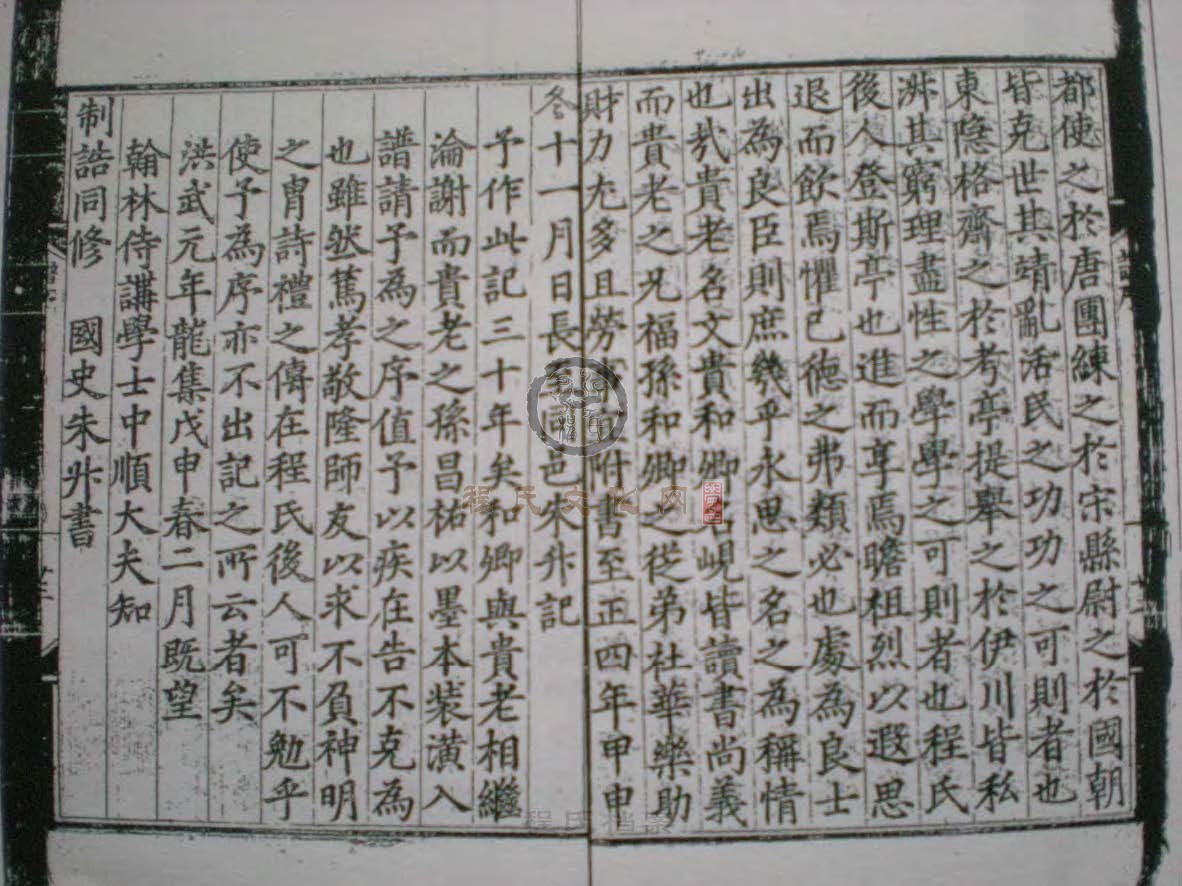 都使之於唐團練之於宋縣尉之於國朝
皆克世其靖亂活民之功功之可則者也
東隐格齋之於考亭提舉之於伊川皆私
淑其窮理盡性之學學之可則者也程氏
後人登斯亭也進而享焉瞻祖烈以遐思
退而飲焉懼已徳之弗類必也處為良士
出為良臣則庶幾乎永思之名之為稱情
也㢤貴老名文貴和卿名峴皆讀書尚義
而貴老之兄福孫和卿之從弟社華樂助
財力尤多且勞宜附書至正四年甲申
冬十一月日長至同邑朱升記
予作此記三十年矣和卿與貴老相繼
淪謝而貴老之孫昌祐以墨本装潢入
譜請予為之序值予以疾在告不克為
也雖然篤孝敬隆師友以求不負神明
之胄詩禮之傳在程氏後人可不勉乎
使予為序亦不出記之所云者矣
洪武元年龍集戊申春二月既望
翰林侍講學士中順大夫知
制誥同修 國史朱升書
程氏文化网
程氏档案